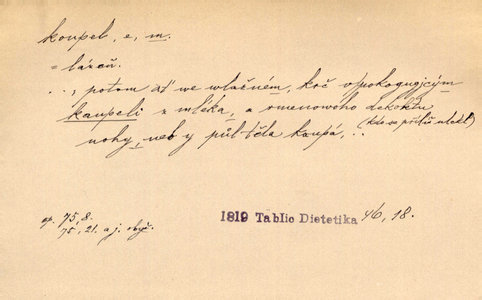 koupel, e, m.
= lázeň.
..., potom ať we wlažném, [též] spokogugjcým
kaupeli z mléka, a rmenowého dekoktu
nohy, neb y půl těla kaupá, .. (kdo se příliš
op. 75, 8.
75, 21. a j. obyč.
1819 Tablic Dietetika 46, 18.